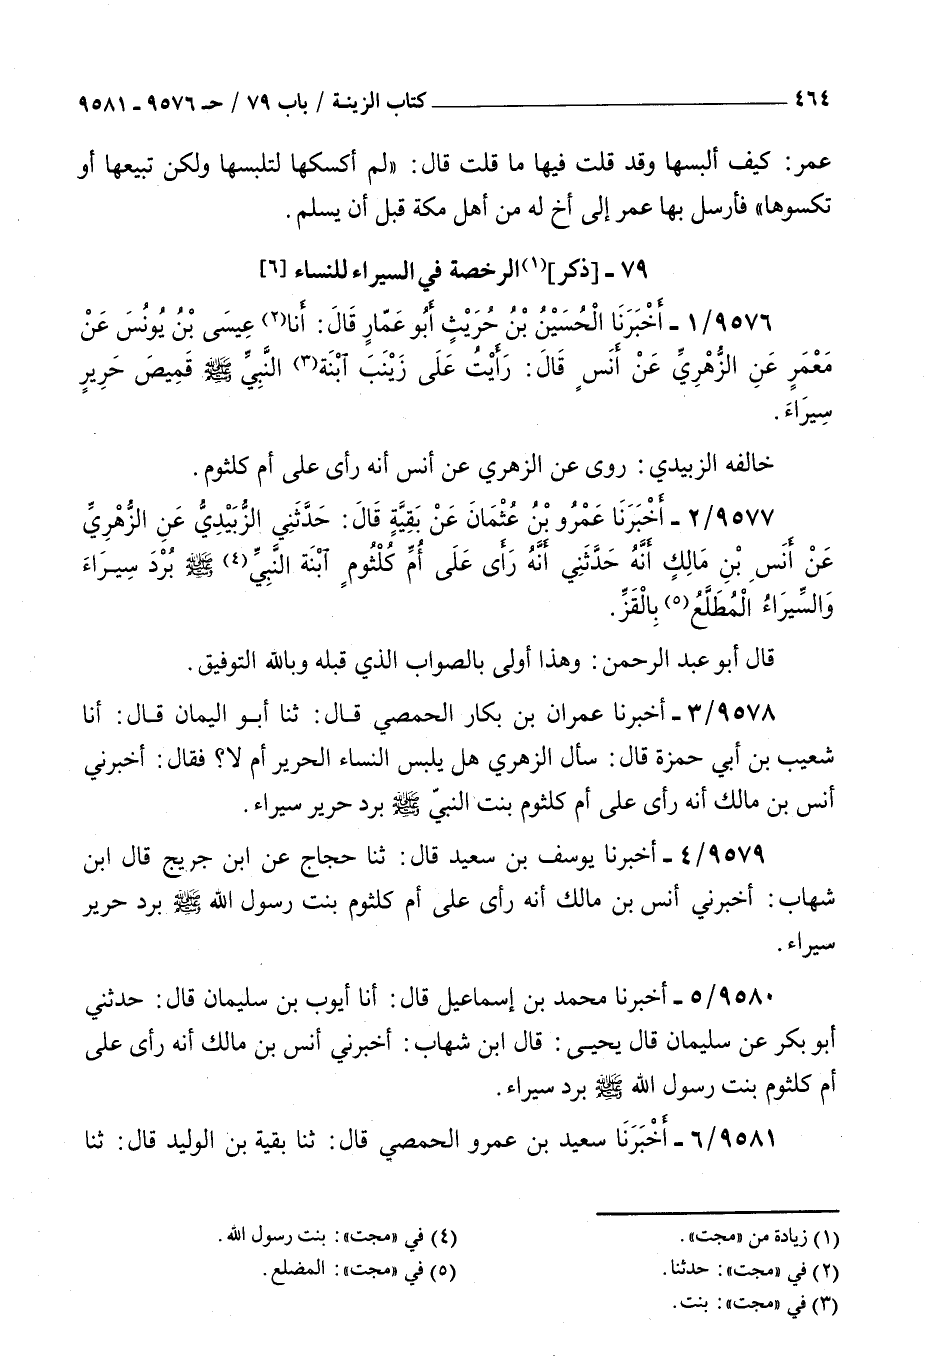 ٤٦٤ ــــــــــــــــــــ كتاب الزينة / باب ٧٩ / حـ ٩٥٧٦ ـ ٩٥٨١
عمر: كيف ألبسها وقد قلت فيها ما قلت قال: «لم أكسكها لتلبسها ولكن تبيعها أو
تكسوها» فأرسل بها عمر إلى أخ له من أهل مكة قبل أن يسلم.
٧٩ ـ [ذكر](١) الرخصة في السيراء للنساء [٦]
١/٩٥٧٦ ـ أَخْبَرَنَا الْحُسَيْنُ بْنُ حُرَيْثٍ أَبُو عَمّارٍ قَالَ: أَنا(٢) عِيسَى بْنُ يُونُسَ عَنْ
مَعْمَرٍ عَنِ الزُّهْرِيِّ عَنْ أَنَسٍ قَالَ: رَأَيْتُ عَلَى زَيْنَبَ ٱبْنَة(٣) النَّبِيِّ ﷺ قَمِيصَ حَرِيرٍ
سِيَرَاءَ.
خالفه الزبيدي: روى عن الزهري عن أنس أنه رأى على أم كلثوم.
٢/٩٥٧٧ ـ أَخْبَرَنَا عَمْرُو بْنُ عُثْمَانَ عَنْ بَقِيَّةٍ قَالَ: حَدَّثَنِي الزُّبَيْدِيُّ عَنِ الزُّهْرِيِّ
عَنْ أَنَسِ بْنِ مَالِكٍ أَنَّهُ حَدَّثَنِي أَنَّهُ رَأَى عَلَى أُمِّ كُلْثُومٍ ٱبْنَة النَّبِيِّ(٤) ﷺ بُرْدَ سِيَرَاءَ
وَالسِّيَرَاءُ الْمُطَلَّعُ(٥) بِالْقَزِّ.
قال أبو عبد الرحمن: وهذا أولى بالصواب الذي قبله وبالله التوفيق.
٣/٩٥٧٨ ـ أخبرنا عمران بن بكار الحمصي قال: ثنا أبو اليمان قال: أنا
شعيب بن أبي حمزة قال: سأل الزهري هل يلبس النساء الحرير أم لا؟ فقال: أخبرني
أنس بن مالك أنه رأى على أم كلثوم بنت النبيّ ﷺ برد حرير سيراء.
٤/٩٥٧٩ ـ أخبرنا يوسف بن سعيد قال: ثنا حجاج عن ابن جريج قال ابن
شهاب: أخبرني أنس بن مالك أنه رأى على أم كلثوم بنت رسول الله ﷺ برد حرير
سيراء.
٥/٩٥٨٠ ـ أخبرنا محمد بن إسماعيل قال: أنا أيوب بن سليمان قال: حدثني
أبو بكر عن سليمان قال يحيى: قال ابن شهاب: أخبرني أنس بن مالك أنه رأى على
أم كلثوم بنت رسول الله ﷺ برد سيراء.
٦/٩٥٨١ ـ أَخْبَرَنَا سعيد بن عمرو الحمصي قال: ثنا بقية بن الوليد قال: ثنا
(١) زيادة من «مجت».
(٢) في «مجت»: حدثنا.
(٣) في «مجت»: بنت.
(٤) في «مجت»: بنت رسول الله.
(٥) في «مجت»: المضلع.